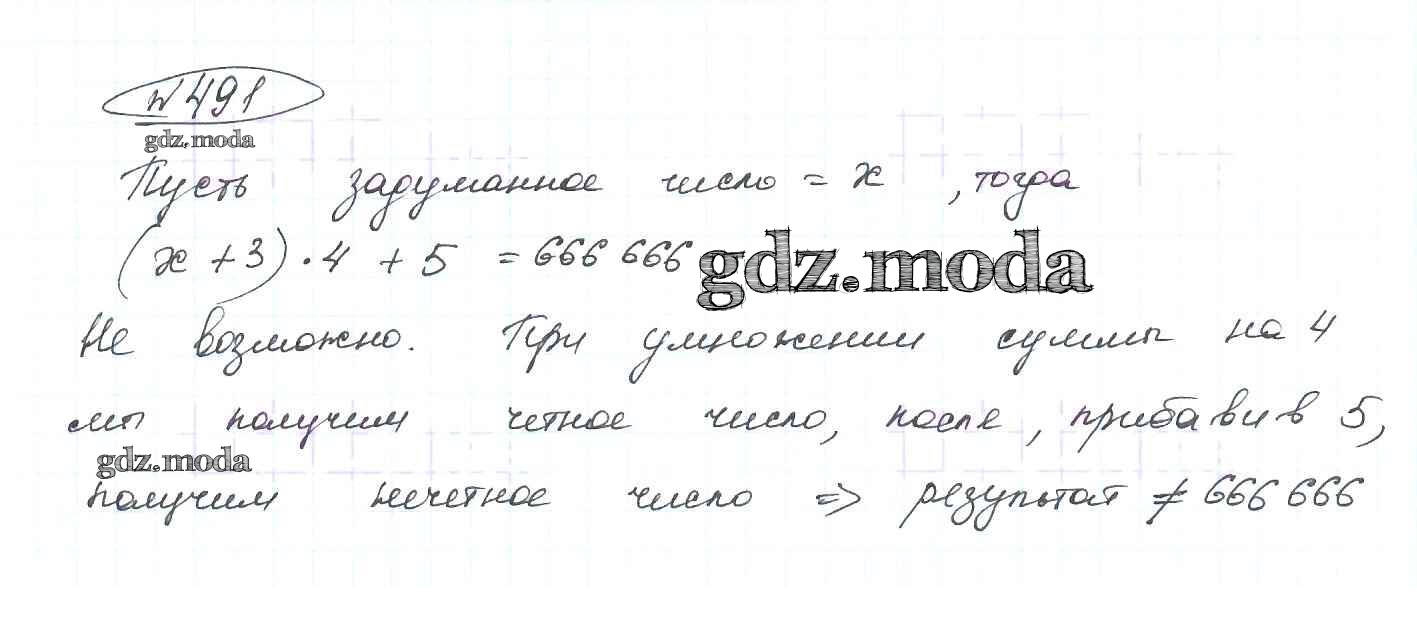 № 491
gdz.moda
Пусть задуманное число = x , тогда
(x + 3) · 4 + 5 = 666 666
gdz.moda
Не возможно. При умножении суммы на 4
мы получим четное число, после, прибавив 5,
gdz.moda
получим нечетное число => результат ≠ 666 666